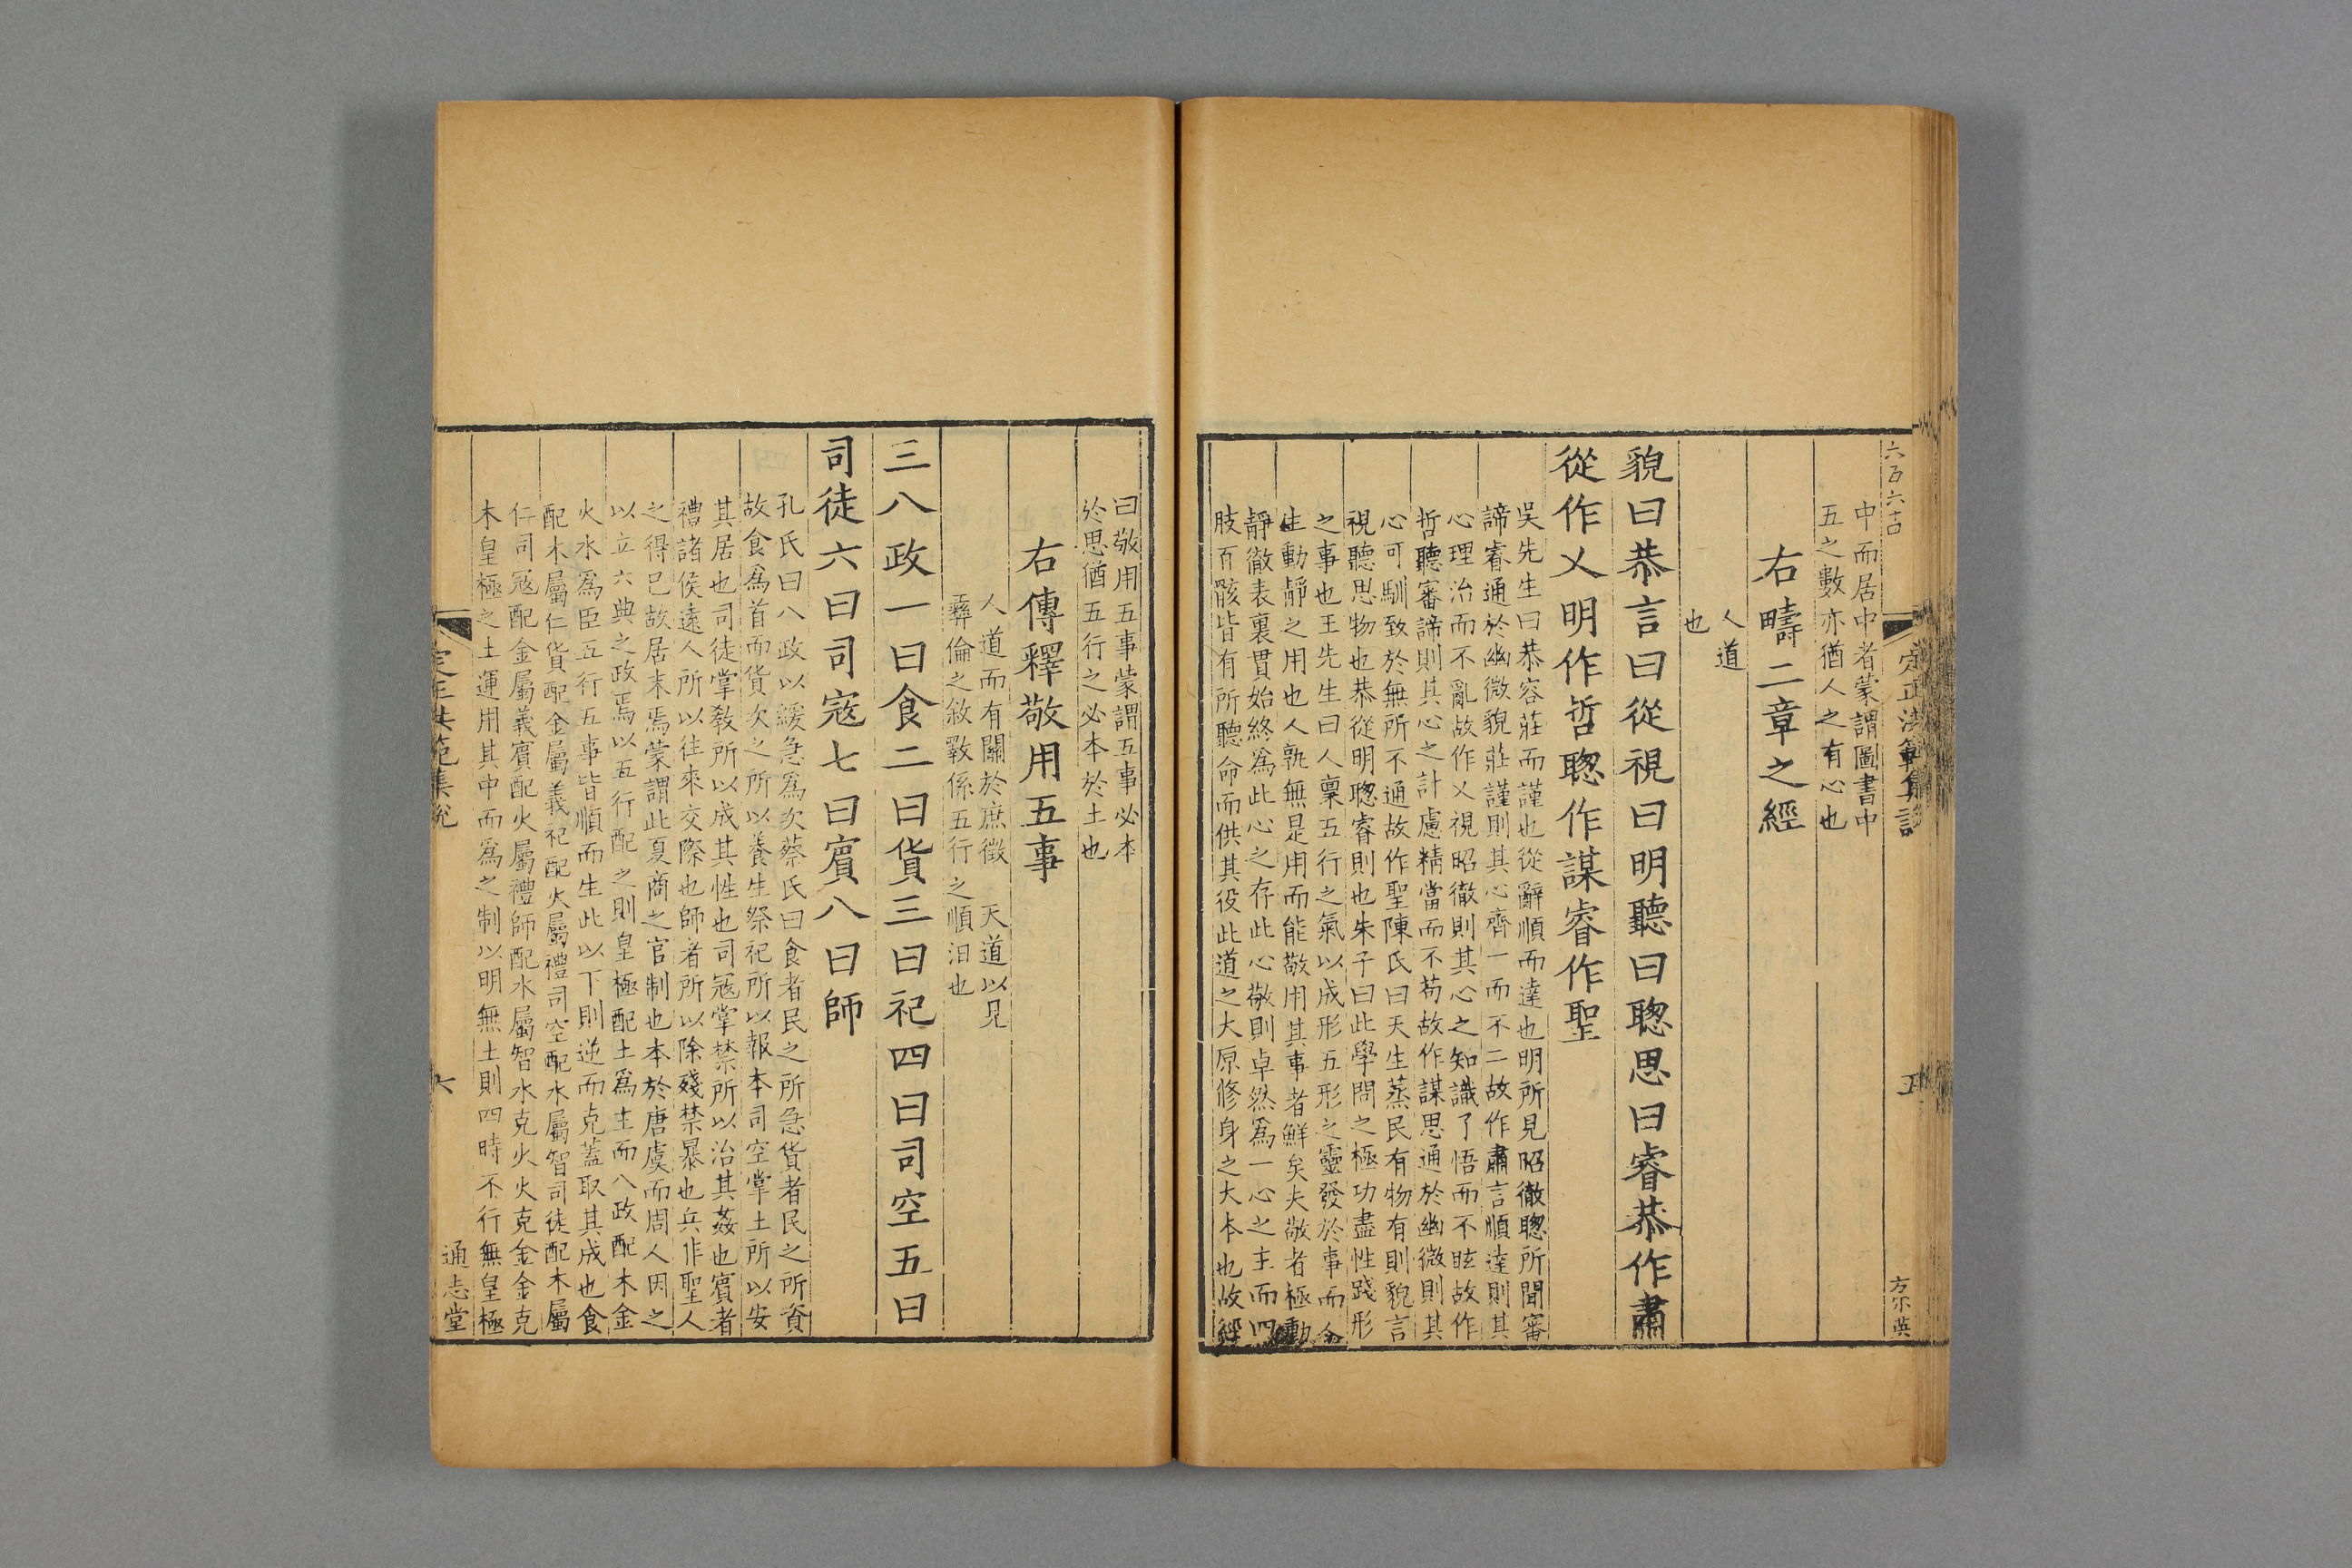 六百六十
定正洪範集說
五
方宗英
中而居中者蒙謂圖書中
五之數亦猶人之有心也
右疇二章之經
人道
也
貌曰恭言曰從視曰明聽曰聰思曰睿恭作肅
從作乂明作哲聰作謀睿作聖
吳先生曰恭容莊而謹也從辭順而達也明所見昭徹聰所聞審
諦睿通於幽微貌莊謹則其心齊一而不二故作肅言順達則其
心理治而不亂故作乂視昭徹則其心之知識了悟而不眩故作
哲聽審諦則其心之計慮精當而不苟故作謀思通於幽微則其
心可馴致於無所不通故作聖陳氏曰天生蒸民有物有則貌言
視聽思物也恭從明聰睿則也朱子曰此學問之極功盡性踐形
之事也王先生曰人稟五行之氣以成形五形之靈發於事而全
生動靜之用也人孰無是用而能敬用其事者鮮矣夫敬者極動
靜徹表裏貫始終為此心之存此心敬則卓然為一心之主而四
肢百骸皆有所聽命而供其役此道之大原修身之大本也故經
曰敬用五事蒙謂五事必本
於思猶五行之必本於土也
右傳釋敬用五事
人道而有關於庶徵 天道以見
彝倫之敘斁係五行之順汩也
三八政一曰食二曰貨三曰祀四曰司空五曰
司徒六曰司寇七曰賓八曰師
孔氏曰八政以緩急為次蔡氏曰食者民之所急貨者民之所資
故食為首而貨次之所以養生祭祀所以報本司空掌土所以安
其居也司徒掌敎所以成其性也司寇掌禁所以治其姦也賓者
禮諸侯遠人所以往來交際也師者所以除殘禁暴也兵作聖人
之得已故居末焉蒙謂此夏商之官制也本於唐虞而周人因之
以立六典之政焉以五行配之則皇極配土為主而八政配木金
火水為臣五行五事皆順而生此以下則逆而克蓋取其成也食
配木屬仁貨配金屬義祀配火屬禮司空配水屬智司徒配木屬
仁司寇配金屬義賓配火屬禮師配水屬智水克火火克金金克
木皇極之土運用其中而為之制以明無土則四時不行無皇極
定正洪範集說
六
通志堂